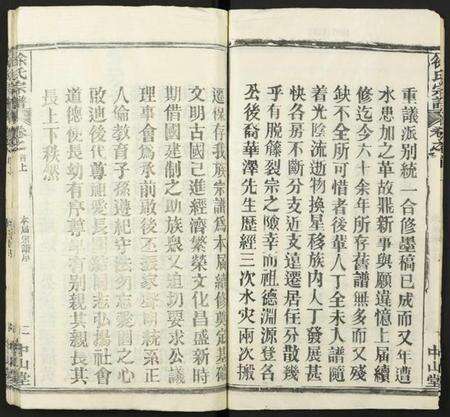 徐氏宗譜
中山堂
重議派別統一合修墨稿已成而又年遭
水患加之革故鼎新事與願違憶上屆續
修迄今六十餘年所存舊譜無多而又殘
缺不全所可惜者後輩人丁全未入譜隨
着光陰流逝物換星移族内人丁發展甚
快各房不斷分支近支遠遷居住分散幾
乎有脱離裂宗之險幸而祖德淵源登名
公後裔華澤先生歷經三次水灾兩次搬
遷保存我族宗譜爲本屆續修奠定基礎
文明古國已進經濟繁榮文化昌盛新時
期借國建制之助族衆又迫切要求公議
理事會爲承前啟後丕振家聲明統系正
人倫教育子孫遵紀守法勿忘愛國之心
啟迪後代尊祖愛長
志弘揚社會
道德使長幼有序尊
有别親其親長其
長上下秩然
徐氏宗譜
上
本屆宗譜序
二
中山堂